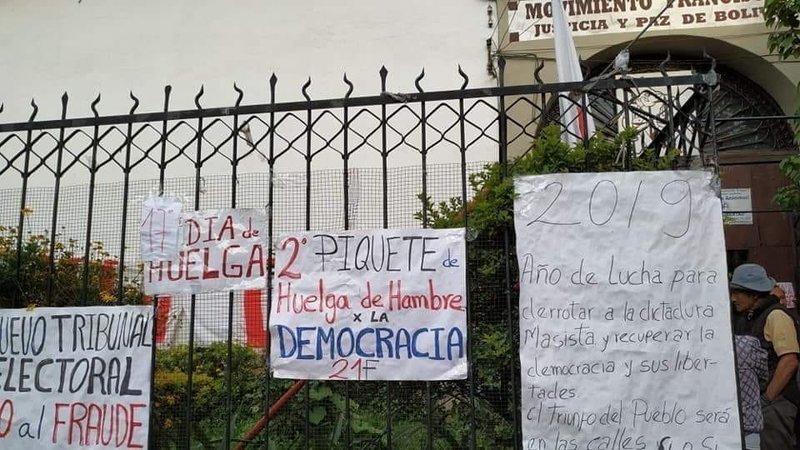 MOVIMIENTO FRANCIS
JUSTICIA Y PAZ DE BOLI
17° DIA DE
HUELGA
2° PIQUETE de
Huelga de Hambre
x LA
DEMOCRACIA
21F
UEVO TRIBUNAL
ELECTORAL
O al FRAUDE
2019
Año de Lucha para
derrotar a la dictadura
Masista, y recuperar la
democracia y sus liber-
tades.
El triunfo del Pueblo será
en las calles